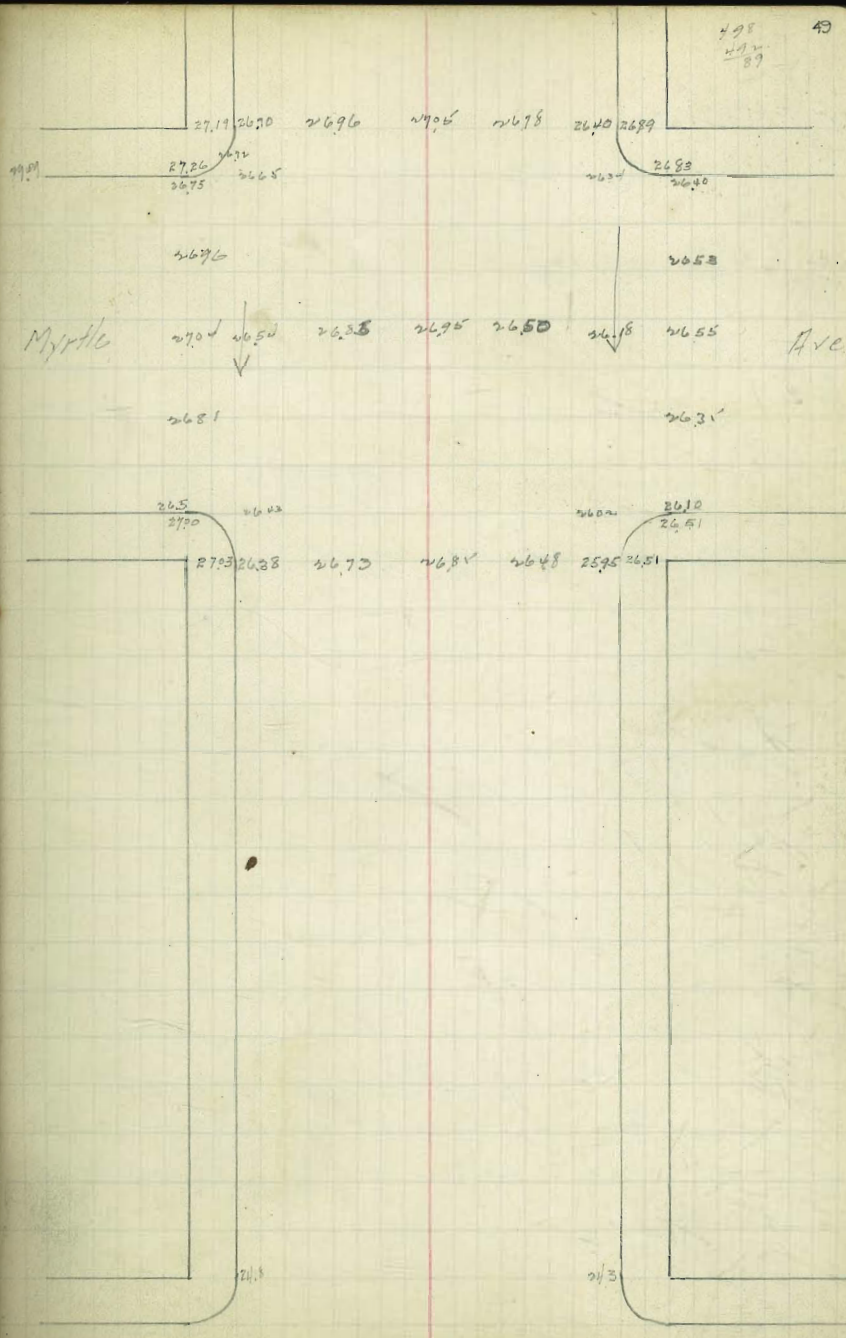 49
498
89
27.19 26.70 26.96 27.05 26.78 26.40 26.89
27.26 26.83
26.75 26.65 26.40
26.96 26.53
Myrtle 27.04 26.54 26.85 26.95 26.50 26.18 26.55 Ave.
26.81
26.5 26.43 26.02 26.10
27.20 26.51
27.03 26.38 26.73 26.48 25.95 26.51
24.3